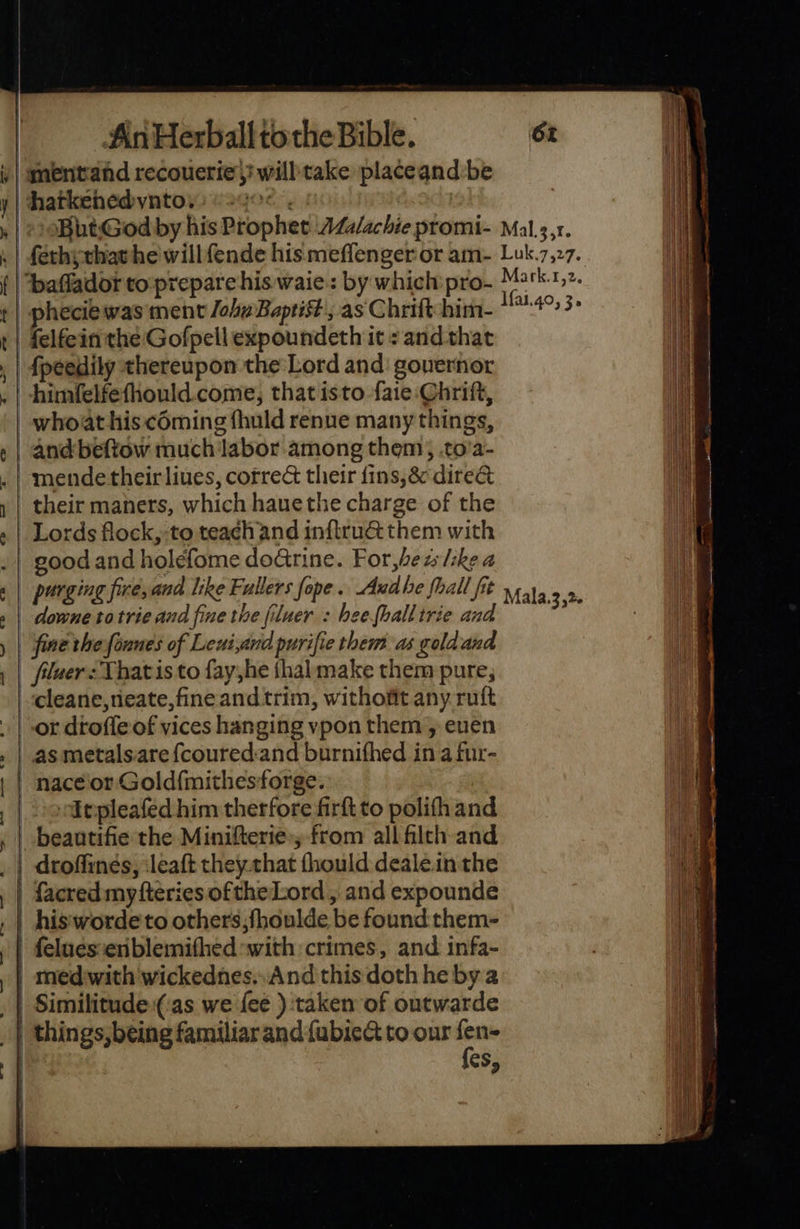 An Herball to the Bible. 61
mentand recouerie, will take place and be
harkened vnto.
But God by his Prophet Malachie promi-
ſeth, that he will ſende his meſſenger or am-
baſſador to prepare his waie: by which pro-
phecie was ment John Baptist, as Chriſt him-
ſelfe in the Goſpell expoundeth it: and that
ſpeedily thereupon the Lord and gouernor
himſelfe ſhould come, that is to ſaie Chriſt,
who at his cōming ſhuld renue many things,
and beſtow much labor among them, to a-
mende their liues, correct their ſins, & direct
their maners, which haue the charge of the
Lords flock, to teach and inſtruct them with
good and holeſome doctrine. For, he is like a
purging fire, and like Fullers ſope. And he ſhall ſit
downe to trie and fine the ſiluer: hee ſhall trie and
fine the ſonnes of Leui, and purifie them as gold and
ſiluer: That is to ſay, he ſhal make them pure,
cleane, neate, fine and trim, without any ruſt
or droſſe of vices hanging vpon them, euen
as metals are ſcoured and burniſhed in a fur-
nace or Goldſmithes forge.
It pleaſed him therfore firſt to poliſh and
beautifie the Miniſterie, from all filth and
droſſines, leaſt they that ſhould deale in the
ſacred myſteries of the Lord, and expounde
his worde to others, ſhoulde be found them-
ſelues enblemiſhed with crimes, and infa-
med with wickednes. And this doth he by a
Similitude (as we ſee) taken of outwarde
things, being familiar and ſubiect to our ſen-
ſes,
Mal.3,1.
Luk.7,27.
Mark.1,2.
Iſai.40,3.
Mala.3,2.